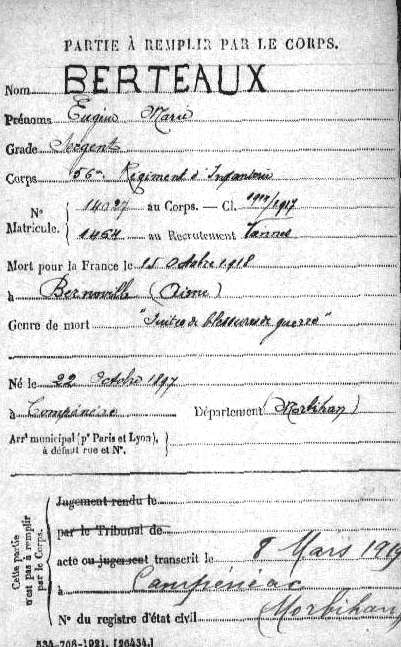 PARTIE À REMPLIR PAR LE CORPS.
Nom BERTEAUX
Prénoms Eugène Marie
Grade Sergent
Corps 56me Régiment d'Infanterie
No Matricule. 14027 au Corps. — Cl. 1917
1464 au Recrutement Vannes
Mort pour la France le 15 Octobre 1918
à Bernoville (Aisne)
Genre de mort "Suites de blessures de guerre"
Né le 22 Octobre 1897
à Département (Morbihan)
Arrt municipal (pr Paris et Lyon),
à défaut rue et No.
Cette partie n'est pas à remplir par le Corps.
Jugement rendu le
par le Tribunal de
acte ou jugement transcrit le 8 Mars 1919
à Campénéac
Morbihan
No du registre d'état civil
534-708-1921. [26434.]